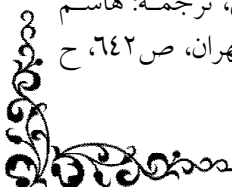 ، ترجمـة: هاشـم
هران، ص٦٤٢، ح